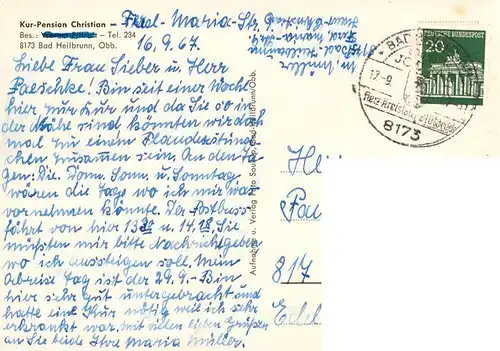 Kur-Pension Christian - Frl. Maria-Stg
Bes.: - Tel. 234
8173 Bad Heilbrunn, Obb.
16.9.67
Liebe Frau Sieber u. Herr
Paeschke! Bin seit einer Woche
hier zur Kur und da Sie so in
der Nähe sind könnten wir doch
mal zu einem Plauderstünd
chen zusamen sein. An den Ta
gen: Die Donn. Sonn. u. Sonntag
wären die Tage wo ich mir was
vornehmen könnte. Der Postbus
fährt von hier 13 30 u. 14.18. Sie
müßten mir bitte Nachricht geben
wo ich aussteigen soll. Mein
Abreise Tag ist der 29.9. - Bin
hier sehr gut untergebracht und
hatte eine Kur nötig weil ich sehr
erkrankt war. Mit vielen lieben Grüßen
an Sie beide Ihre Maria Müller.
Aufnahme u. Verlag Bad Heilbrunn/Obb.
M. Müller
8173 Bad Heilbrunn
Haus Christian
DEUTSCHE BUNDESPOST
20
BAD
17.-9.
8173
He
Pa
817